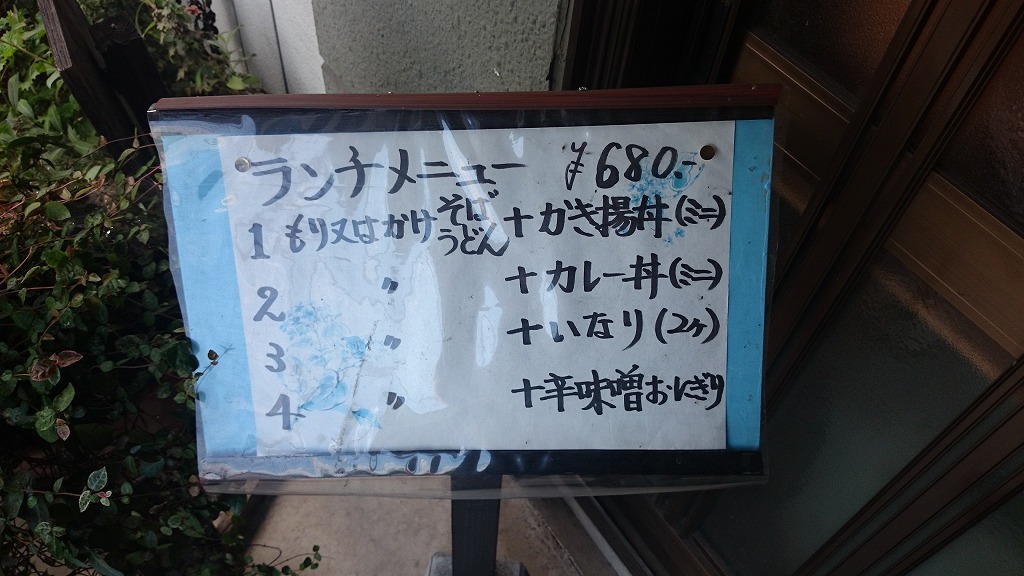 ランチメニュー ¥680.-
1 もり又はかけ そば うどん +かき揚丼(ミニ)
2 〃 +カレー丼(ミニ)
3 〃 +いなり(2ヶ)
4 〃 +辛味噌おにぎり